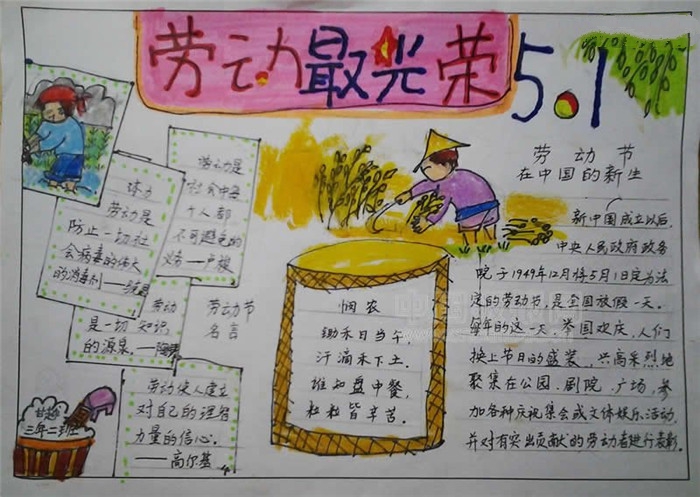 劳动最光荣
5.1
劳动是
社会中每
个人都
不可避免的
义务—卢梭
体力
劳动是
防止一切社
会病毒的伟大
的消毒剂—
劳动
是一切知识
的源泉。—
劳动节
名言
劳动使人建立
对自己的理智
力量的信心。
——高尔基
三年二班
悯农
锄禾日当午，
汗滴禾下土。
谁知盘中餐，
粒粒皆辛苦。
劳动节
在中国的新生
新中国成立以后，
中央人民政府政务
院于1949年12月将5月1日定为法
定的劳动节，是全国放假一天。
每年的这一天，举国欢庆，人们
换上节日的盛装，兴高采烈地
聚集在公园、剧院、广场，参
加各种庆祝集会或文体娱乐活动，
并对有突出贡献的劳动者进行表彰。